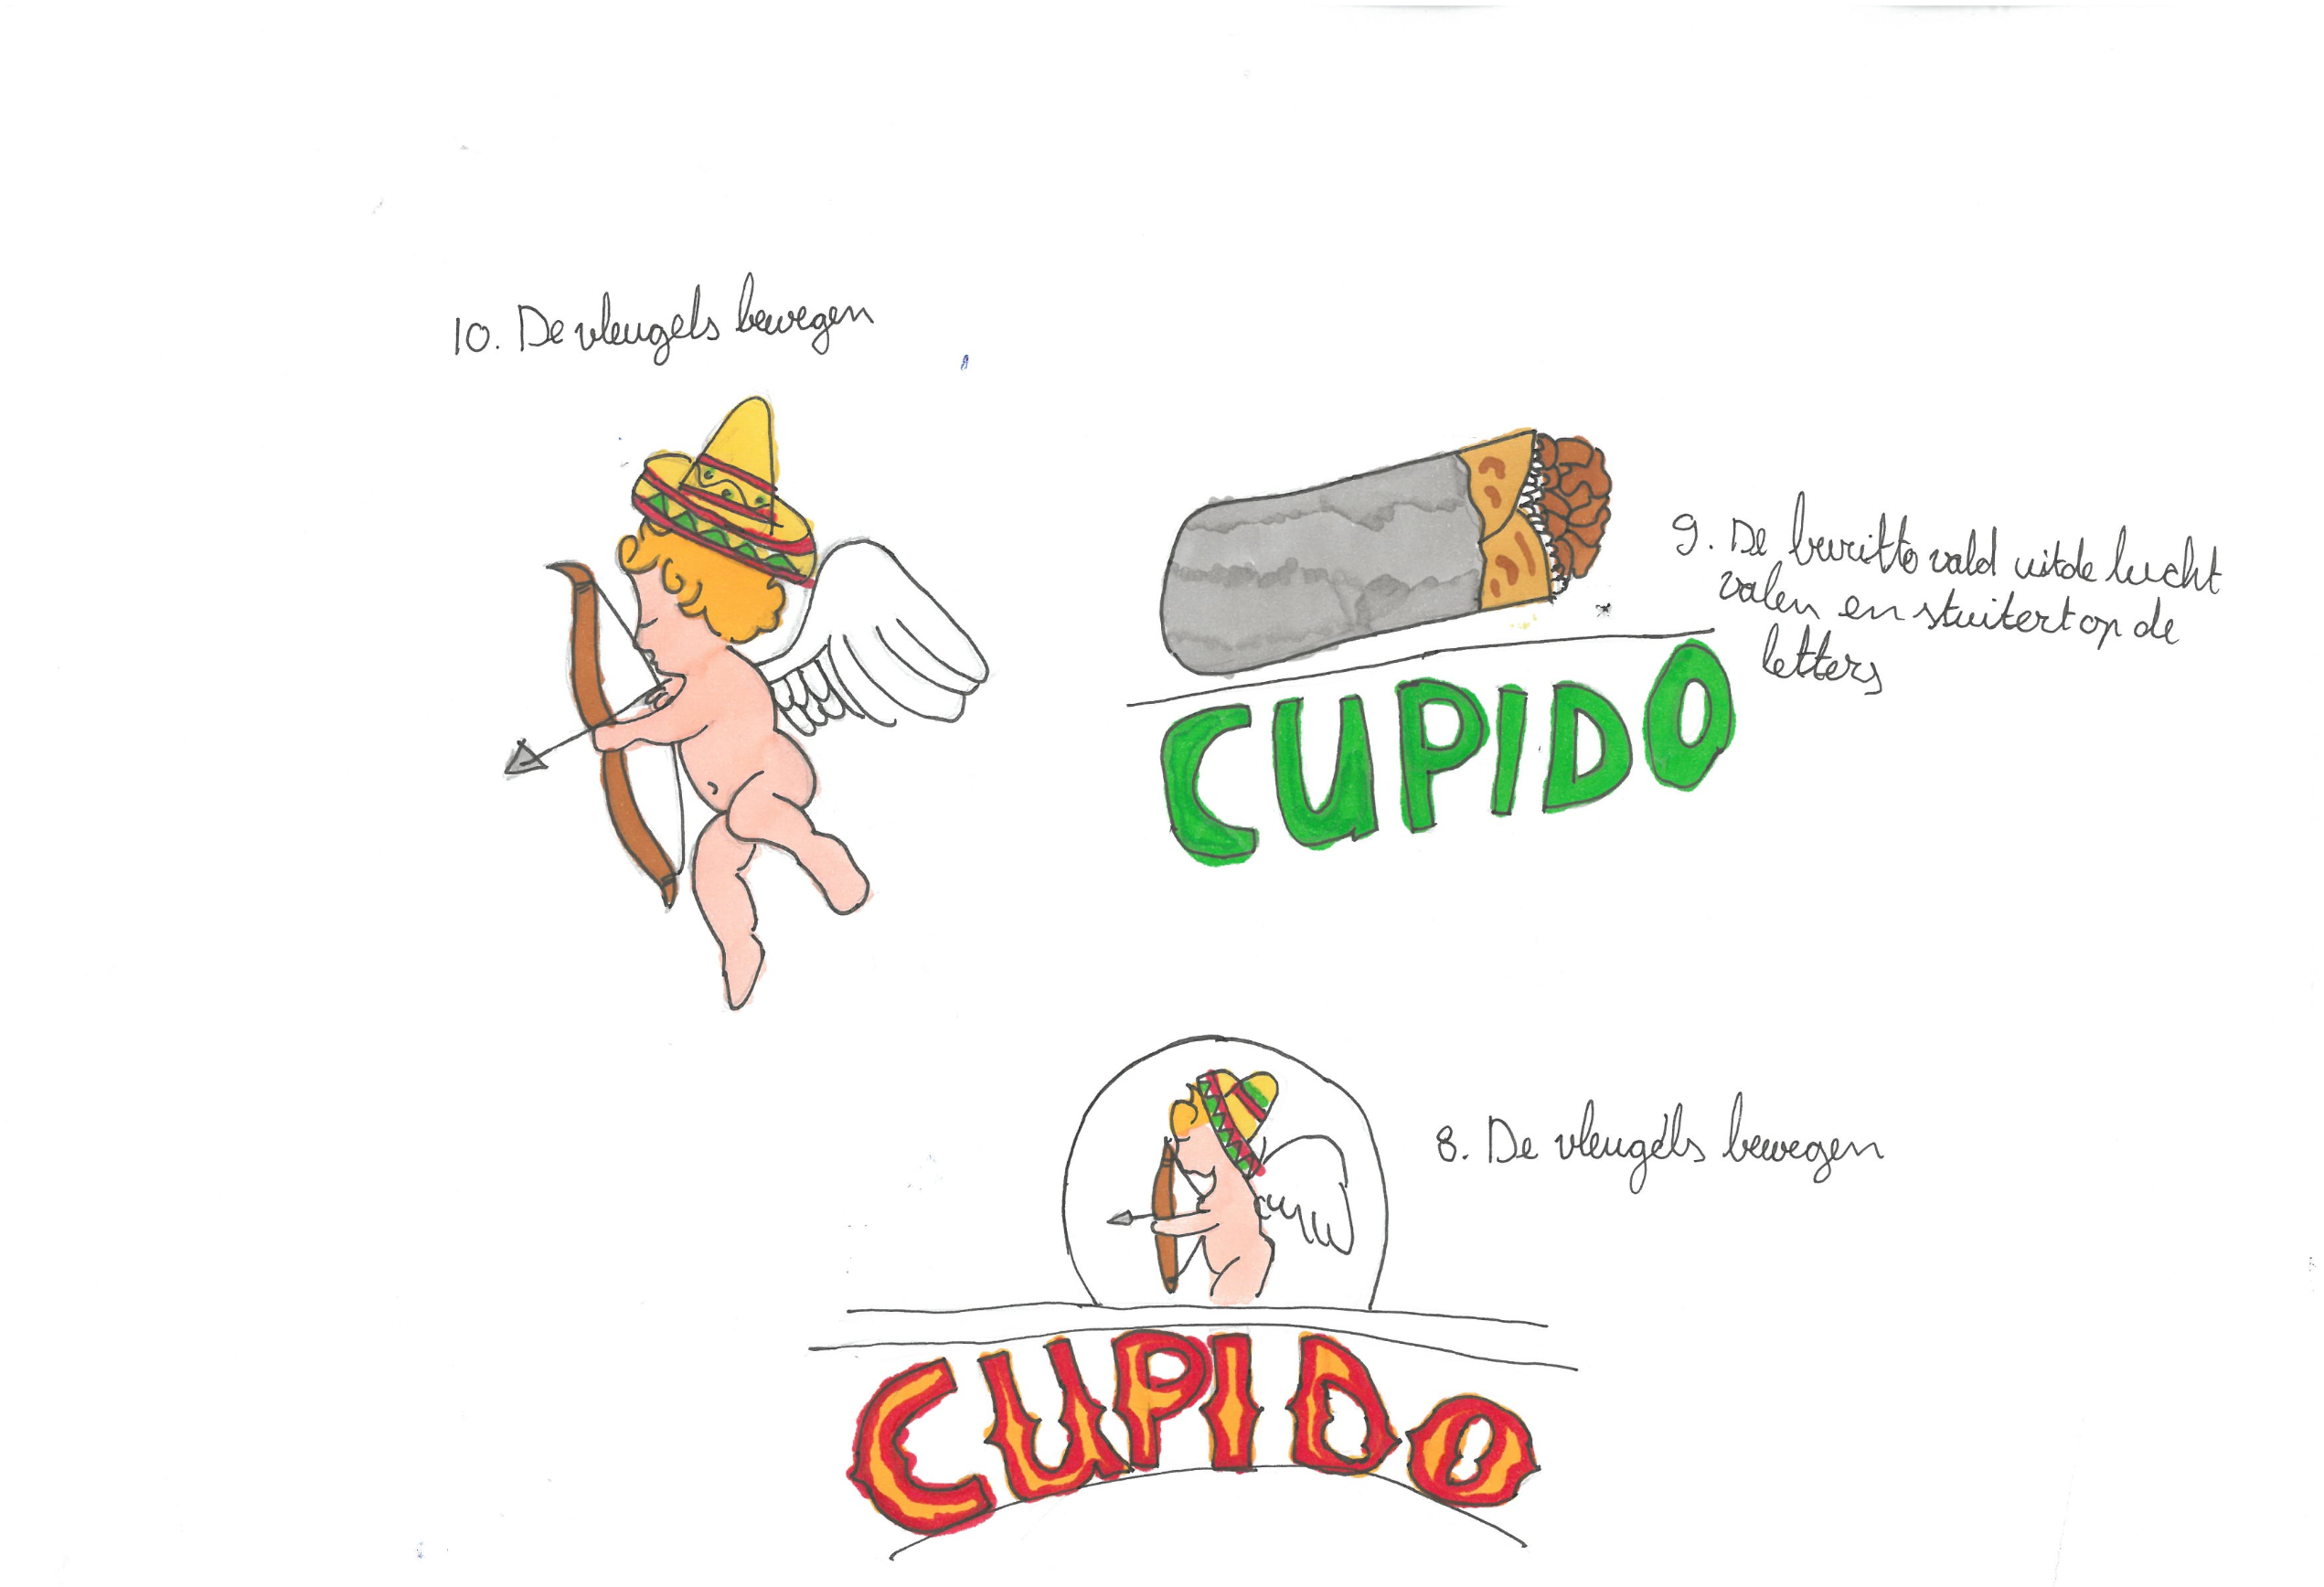 10. De vleugels bewegen
9. De buritto vald uit de lucht
valen en stuitert op de
letters
CUPIDO
8. De vleugels bewegen
CUPIDO